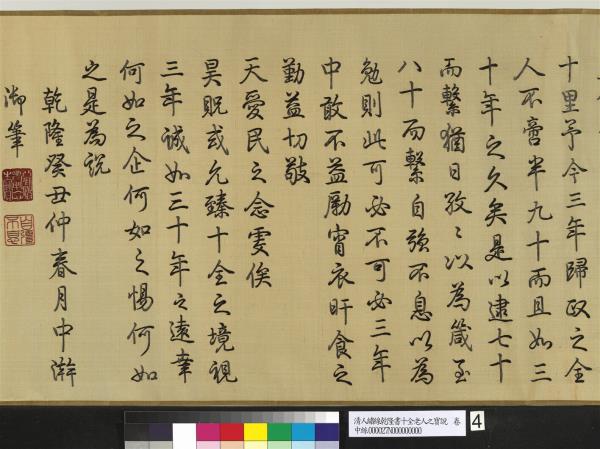 十里予今三年歸政之全
人不啻半九十而且如三
十年之久矣是以逮七十
而繫猶日孜〻以為箴至
八十而繫自強不息以為
勉則此可必不可必三年
中敢不益勵宵衣旰食之
勤益切敬
天愛民之念虔俟
昊貺或允臻十全之境視
三年誠如三十年之遠幸
何如之企何如之惕何如
之是為說
乾隆癸丑仲春月中澣
御筆
自彊不息
清人繡線乾隆書十全老人之寶說 卷
中絲000027N000000000
4